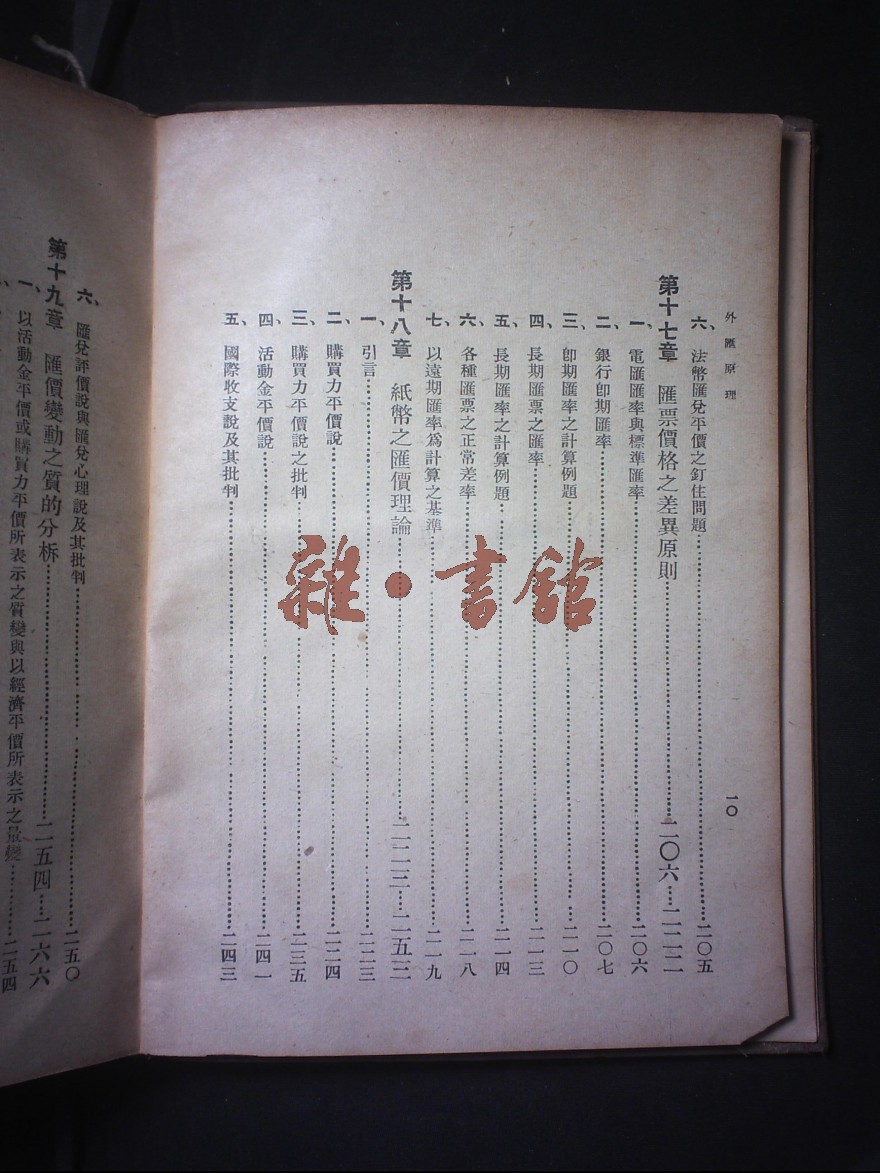 外匯原理
一〇
六、法幣匯兌平價之釘住問題……二〇五
第十七章 匯票價格之差異原則……二〇六…二二二
一、電匯匯率與標準匯率……二〇六
二、銀行卽期匯率……二〇七
三、卽期匯率之計算例題……二一〇
四、長期匯票之匯率……二一三
五、長期匯率之計算例題……二一四
六、各種匯票之正常差率……二一八
七、以遠期匯率爲計算之基準……二一九
第十八章 紙幣之匯價理論……二二三…二五三
一、引言……二二三
二、購買力平價說……二二四
三、購買力平價說之批判……二三五
四、活動金平價說……二四一
五、國際收支說及其批判……二四三
六、匯兌評價說與匯兌心理說及其批判……二五〇
第十九章 匯價變動之質的分析……二五四…二六六
一、以活動金平價或購買力平價所表示之質變與以經濟平價所表示之量變……二五四
雜·書館